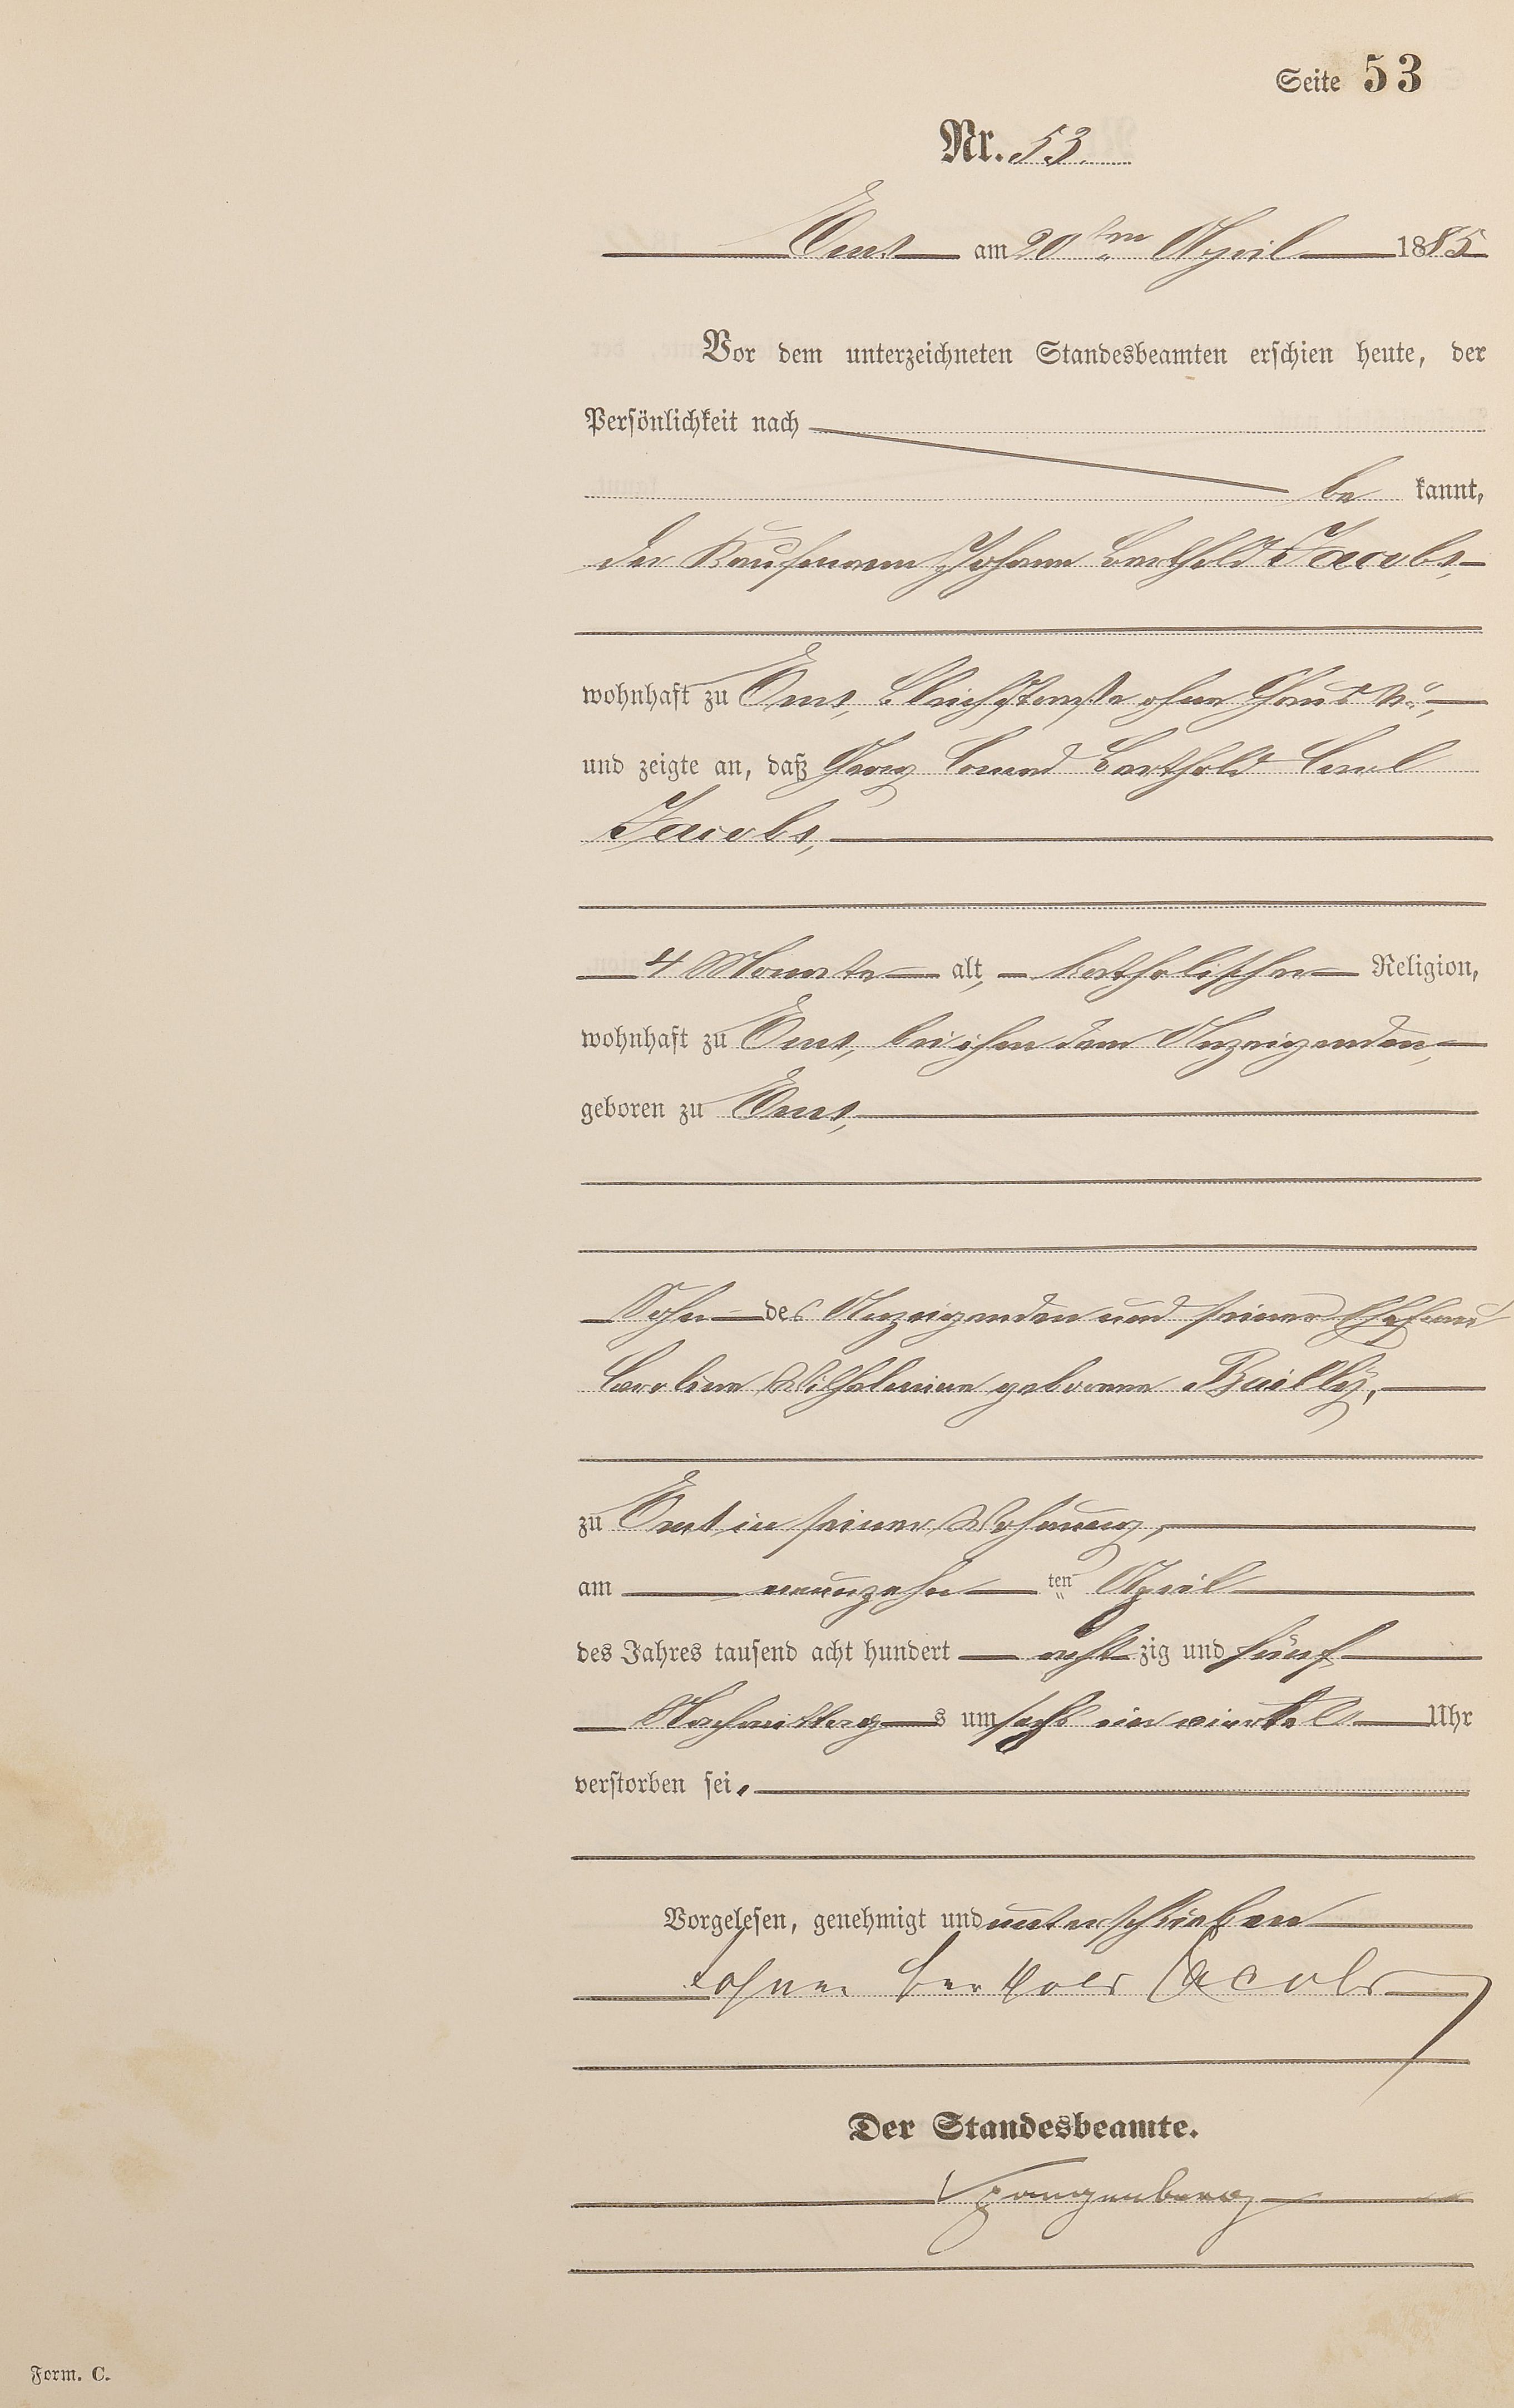 Seite 53
Nr. 53.
Ems am 20ten April 1885
Vor dem unterzeichneten Standesbeamten erschien heute, der
Persönlichkeit nach
be kannt,
der Kaufmann Johann Berthold Jacobs,
wohnhaft zu Ems, Bleichstraße ohne Haus No,
und zeigte an, daß Georg Conrad Berthold Carl
Jacobs,
4 Monate alt, katholischer Religion,
wohnhaft zu Ems, bei ihm dem Anzeigenden,
geboren zu Ems,
Sohn des Anzeigenden und seiner Ehefrau
Caroline Wilhelmine geborene Bailly,
zu Ems in seiner Wohnung,
am neunzehn ten April
des Jahres tausend acht hundert acht zig und fünf
Nachmittag s um sechs ein viertel Uhr
verstorben sei.
Vorgelesen, genehmigt und unterschrieben
Johann Berthold Jacobs
Der Standesbeamte.
Spangenberg
Form. C.